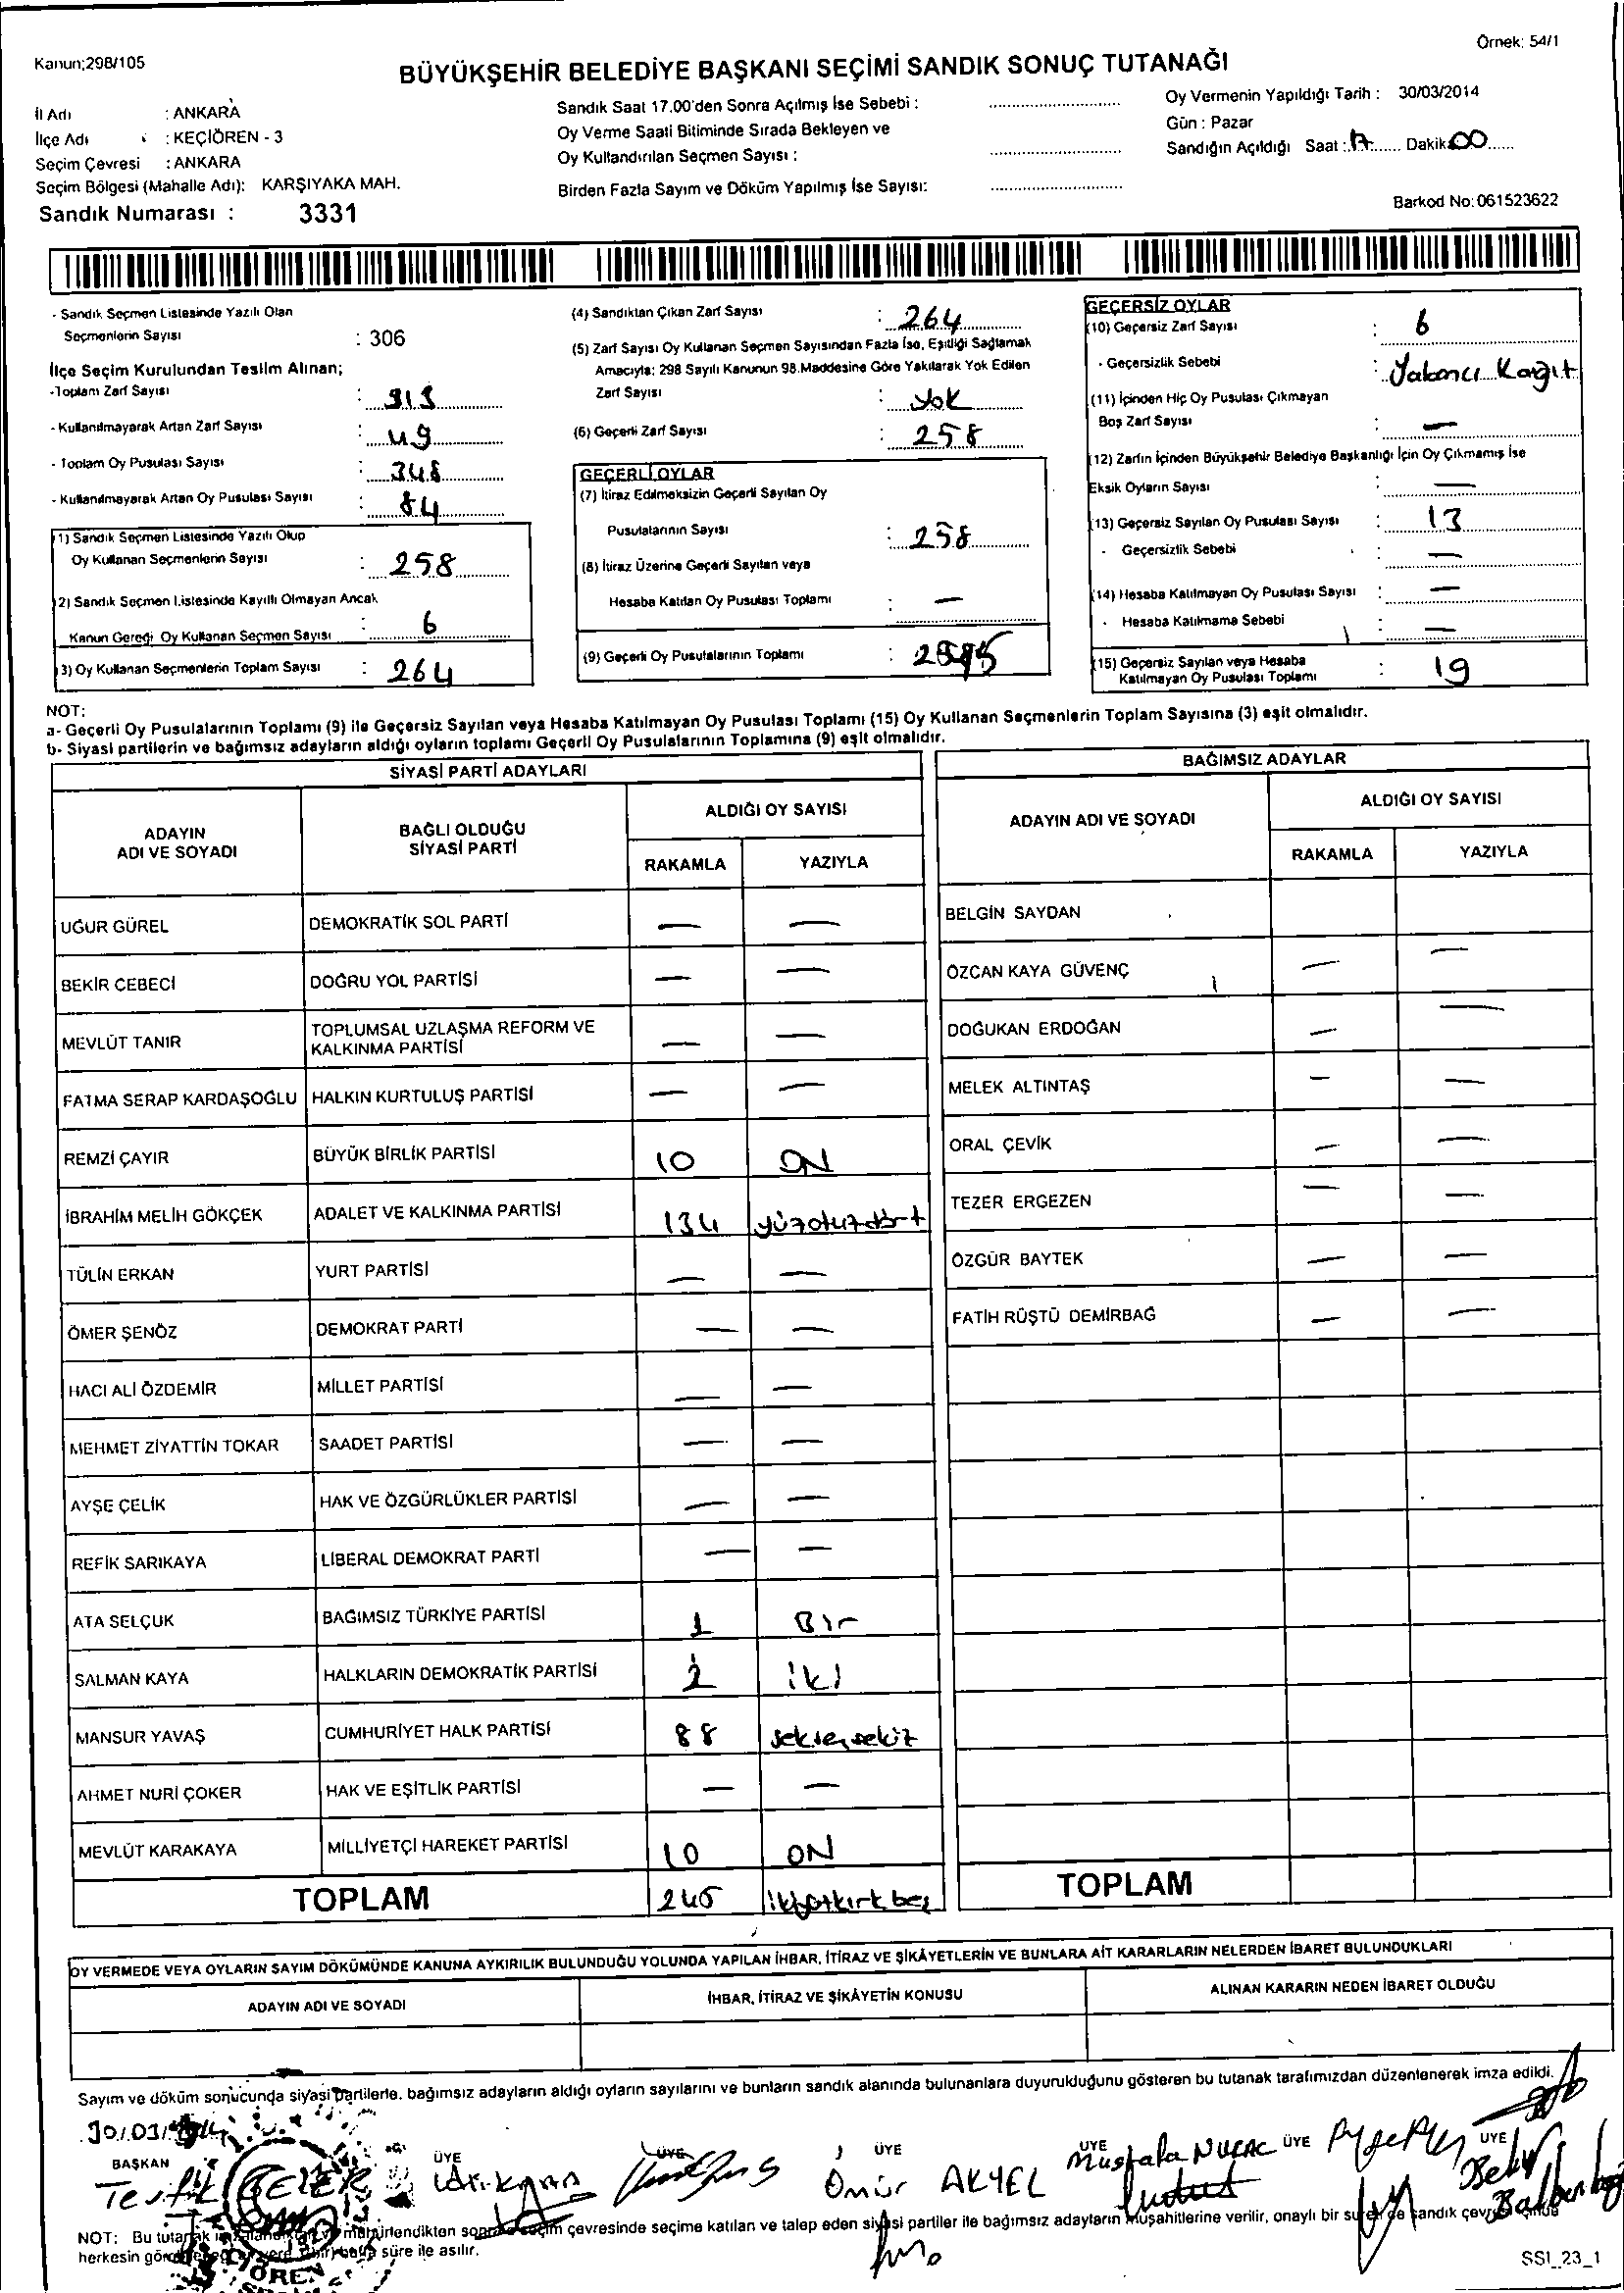 Örnek: 54/1
Kanun;298/105
BÜYÜKŞEHİR BELEDİYE BAŞKANI SEÇİMİ SANDIK SONUÇ TUTANAĞI
İl Adı : ANKARA
İlçe Adı : KEÇİÖREN - 3
Seçim Çevresi : ANKARA
Seçim Bölgesi (Mahalle Adı): KARŞIYAKA MAH.
Sandık Numarası : 3331
Sandık Saat 17.00'den Sonra Açılmış İse Sebebi :
Oy Verme Saati Bitiminde Sırada Bekleyen ve
Oy Kullandırılan Seçmen Sayısı :
Birden Fazla Sayım ve Döküm Yapılmış İse Sayısı:
Oy Vermenin Yapıldığı Tarih : 30/03/2014
Gün : Pazar
Sandığın Açıldığı Saat : 17 Dakika 00
Barkod No: 061523622
- Sandık Seçmen Listesinde Yazılı Olan
Seçmenlerin Sayısı : 306
İlçe Seçim Kurulundan Teslim Alınan;
-Toplam Zarf Sayısı : 313
- Kullanılmayarak Artan Zarf Sayısı : 49
- Toplam Oy Pusulası Sayısı : 348
- Kullanılmayarak Artan Oy Pusulası Sayısı : 84
(1) Sandık Seçmen Listesinde Yazılı Olup
Oy Kullanan Seçmenlerin Sayısı : 258
(2) Sandık Seçmen Listesinde Kayıllı Olmayan Ancak
Kanun Gereği Oy Kullanan Seçmen Sayısı : 6
(3) Oy Kullanan Seçmenlerin Toplam Sayısı : 264
(4) Sandıktan Çıkan Zarf Sayısı : 264
(5) Zarf Sayısı Oy Kullanan Seçmen Sayısından Fazla İse, Eşitliği Sağlamak
Amacıyla; 298 Sayılı Kanunun 98.Maddesine Göre Yakılarak Yok Edilen
Zarf Sayısı : Yok
(6) Geçerli Zarf Sayısı : 258
GEÇERLİ OYLAR
(7) İtiraz Edilmeksizin Geçerli Sayılan Oy
Pusulalarının Sayısı : 258
(8) İtiraz Üzerine Geçerli Sayılan veya
Hesaba Katılan Oy Pusulası Toplamı : —
(9) Geçerli Oy Pusulalarının Toplamı :
GEÇERSİZ OYLAR
(10) Geçersiz Zarf Sayısı : 6
- Geçersizlik Sebebi : Yabancı Kağıt
(11) İçinden Hiç Oy Pusulası Çıkmayan
Boş Zarf Sayısı : —
(12) Zarfın İçinden Büyükşehir Belediye Başkanlığı İçin Oy Çıkmamış İse
Eksik Oyların Sayısı : —
(13) Geçersiz Sayılan Oy Pusulası Sayısı : 13
- Geçersizlik Sebebi : —
(14) Hesaba Katılmayan Oy Pusulası Sayısı : —
- Hesaba Katılmama Sebebi : —
(15) Geçersiz Sayılan veya Hesaba
Katılmayan Oy Pusulası Toplamı : 19
NOT:
a- Geçerli Oy Pusulalarının Toplamı (9) ile Geçersiz Sayılan veya Hesaba Katılmayan Oy Pusulası Toplamı (15) Oy Kullanan Seçmenlerin Toplam Sayısına (3) eşit olmalıdır.
b- Siyasi partilerin ve bağımsız adayların aldığı oyların toplamı Geçerli Oy Pusulalarının Toplamına (9) eşit olmalıdır.
SİYASİ PARTİ ADAYLARI
ADAYIN ADI VE SOYADI BAĞLI OLDUĞU SİYASİ PARTİ ALDIĞI OY SAYISI
RAKAMLA YAZIYLA
UĞUR GÜREL DEMOKRATİK SOL PARTİ — —
BEKİR CEBECİ DOĞRU YOL PARTİSİ — —
MEVLÜT TANIR TOPLUMSAL UZLAŞMA REFORM VE KALKINMA PARTİSİ — —
FATMA SERAP KARDAŞOĞLU HALKIN KURTULUŞ PARTİSİ — —
REMZİ ÇAYIR BÜYÜK BİRLİK PARTİSİ 10 ON
İBRAHİM MELİH GÖKÇEK ADALET VE KALKINMA PARTİSİ 134 yüzotuzdört
TÜLİN ERKAN YURT PARTİSİ — —
ÖMER ŞENÖZ DEMOKRAT PARTİ — —
HACI ALİ ÖZDEMİR MİLLET PARTİSİ — —
MEHMET ZİYATTİN TOKAR SAADET PARTİSİ — —
AYŞE ÇELİK HAK VE ÖZGÜRLÜKLER PARTİSİ — —
REFİK SARIKAYA LİBERAL DEMOKRAT PARTİ — —
ATA SELÇUK BAĞIMSIZ TÜRKİYE PARTİSİ 1 Bir
SALMAN KAYA HALKLARIN DEMOKRATİK PARTİSİ 2 iki
MANSUR YAVAŞ CUMHURİYET HALK PARTİSİ 88 seksensekiz
AHMET NURİ ÇOKER HAK VE EŞİTLİK PARTİSİ — —
MEVLÜT KARAKAYA MİLLİYETÇİ HAREKET PARTİSİ 10 ON
TOPLAM 245 ikiyüzkırkbeş
BAĞIMSIZ ADAYLAR
ADAYIN ADI VE SOYADI ALDIĞI OY SAYISI
RAKAMLA YAZIYLA
BELGİN SAYDAN
ÖZCAN KAYA GÜVENÇ — —
DOĞUKAN ERDOĞAN — —
MELEK ALTINTAŞ — —
ORAL ÇEVİK — —
TEZER ERGEZEN — —
ÖZGÜR BAYTEK — —
FATİH RÜŞTÜ DEMİRBAĞ — —
TOPLAM
OY VERMEDE VEYA OYLARIN SAYIM DÖKÜMÜNDE KANUNA AYKIRILIK BULUNDUĞU YOLUNDA YAPILAN İHBAR, İTİRAZ VE ŞİKÂYETLERİN VE BUNLARA AİT KARARLARIN NELERDEN İBARET BULUNDUKLARI
ADAYIN ADI VE SOYADI İHBAR, İTİRAZ VE ŞİKÂYETİN KONUSU ALINAN KARARIN NEDEN İBARET OLDUĞU
Sayım ve döküm sonucunda siyasi partilerle, bağımsız adayların aldığı oyların sayılarını ve bunların sandık alanında bulunanlara duyurulduğunu gösteren bu tutanak tarafımızdan düzenlenerek imza edildi.
30/03/
BAŞKAN ÜYE ÜYE ÜYE ÜYE ÜYE ÜYE
Ömür AKYEL Mustafa
NOT: Bu tutanak sonra seçim çevresinde seçime katılan ve talep eden siyasi partiler ile bağımsız adayların müşahitlerine verilir, onaylı bir sureti de sandık çevresi içinde
herkesin süre ile asılır.
SSI_23_1